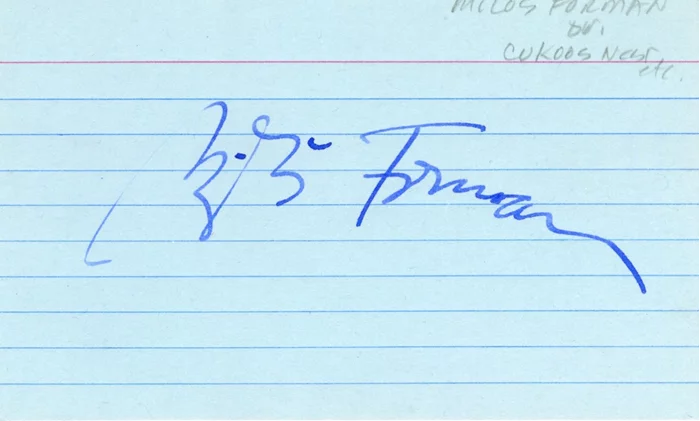 MILOS FORMAN
DIR.
CUKOOS NEST
etc.
Miloš Forman